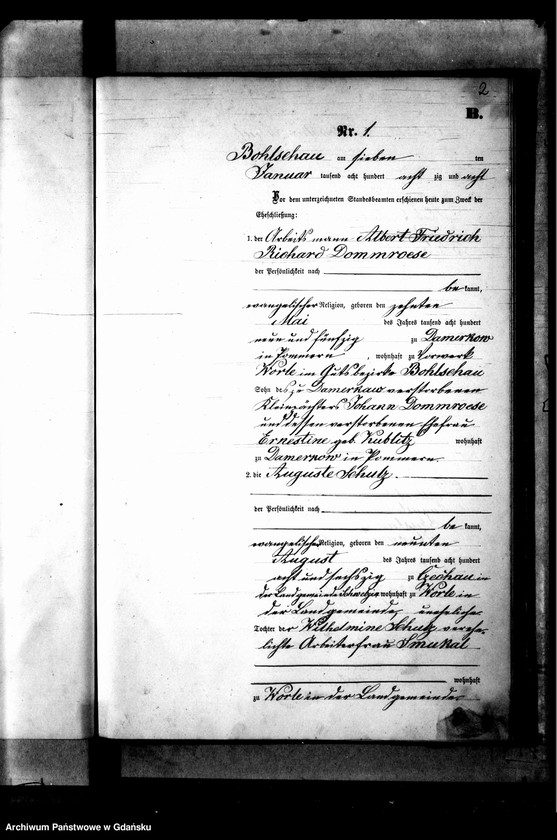 2
B.
Nr. 1.
Bohlschau am sieben ten
Januar tausend acht hundert acht zig und acht
Vor dem unterzeichneten Standesbeamten erschienen heute zum Zweck der
Eheschließung:
1. der Arbeitsmann Albert Friedrich
Richard Dommroese
der Persönlichkeit nach
be kannt,
evangelischer Religion, geboren den zehnten
Mai des Jahres tausend acht hundert
neun und fünfzig zu Damerkow
in Pommern, wohnhaft zu Vorwerk
Worle im Gutsbezirke Bohlschau
Sohn des zu Damerkow verstorbenen
Kleinpächters Johann Dommroese
und dessen verstorbenen Ehefrau
Ernestine geb. Kublitz wohnhaft
zu Damerkow in Pommern.
2. die Auguste Schulz.
der Persönlichkeit nach
be kannt,
evangelischer Religion, geboren den neunten
August des Jahres tausend acht hundert
acht und sechszig zu Czechau in
der Landgemeinde wohnhaft zu Worle in
der Landgemeinde, uneheliche
Tochter der Wilhelmine Schulz verehe-
lichte Arbeiterfrau Smukal
wohnhaft
zu Worle in der Landgemeinde
Archiwum Państwowe w Gdańsku